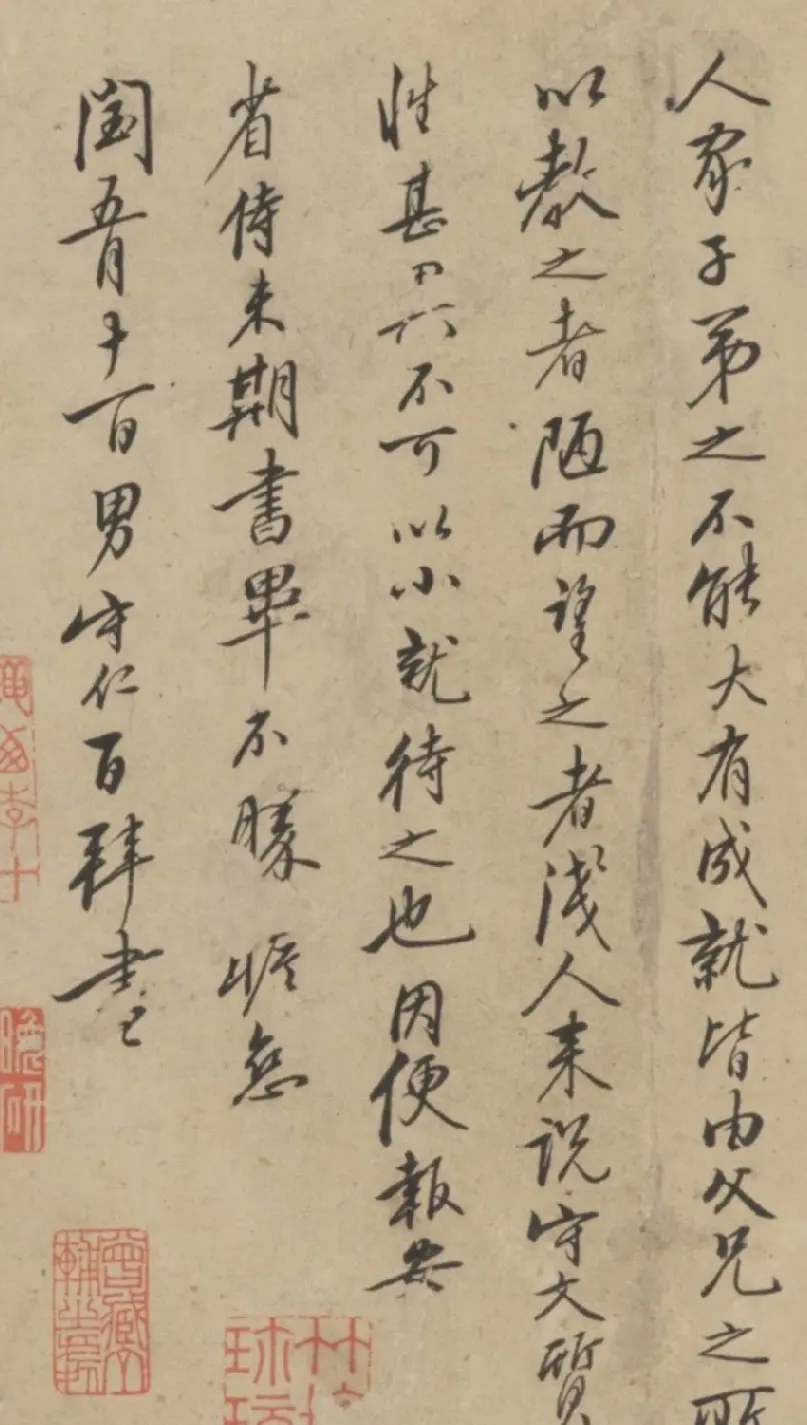 人家子弟之不能大有成就皆由父兄之所
以教之者陋而望之者淺人來說守文質
性甚異不可以小就待之也因便報安
省侍未期書畢不勝瞻戀
閏五月十一日男守仁百拜書
晚研